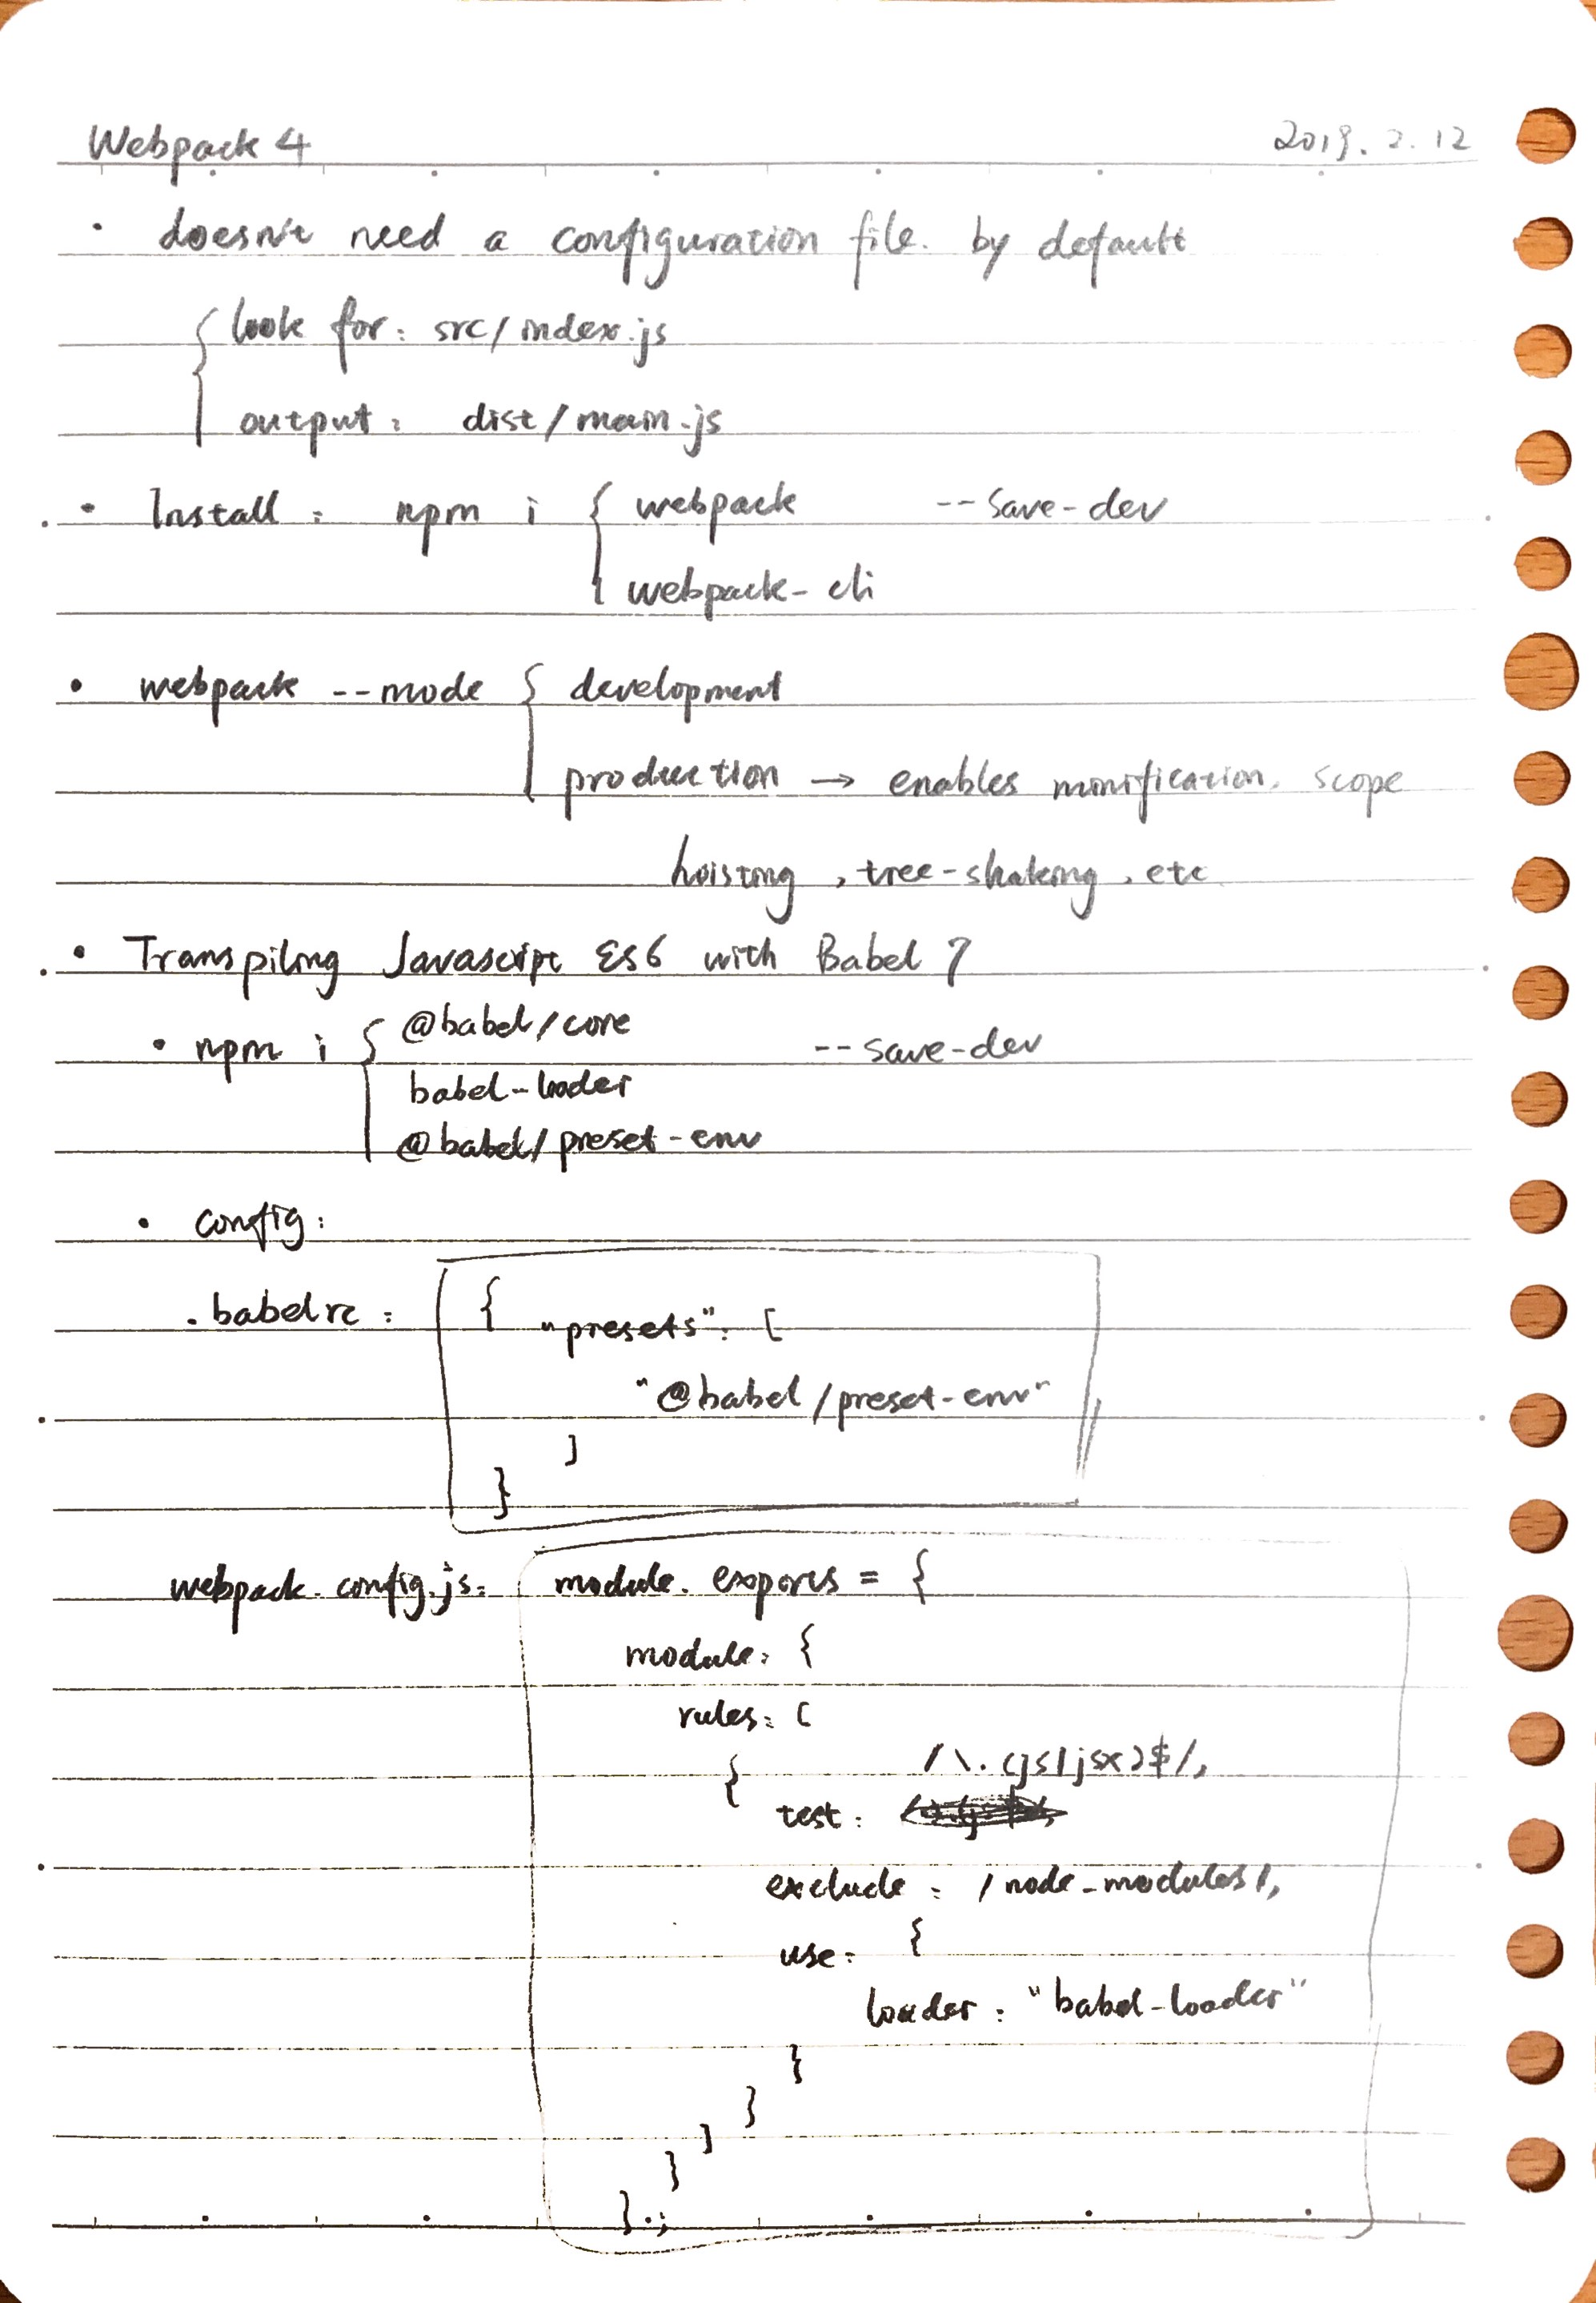 Webpack 4 2019.2.12
• doesn't need a configuration file. by default
{ look for: src/index.js
output: dist/main.js
• Install: npm i { webpack --save-dev
webpack-cli
• webpack --mode { development
production → enables minification, scope
hoisting, tree-shaking, etc
• Transpiling Javascript ES6 with Babel 7
• npm i { @babel/core --save-dev
babel-loader
@babel/preset-env
• config:
.babelrc: {
"presets": [
"@babel/preset-env"
]
}
webpack.config.js: module.exports = {
module: {
rules: [
{
test: /\.(js|jsx)$/,
exclude: /node_modules/,
use: {
loader: "babel-loader"
}
}
]
}
};